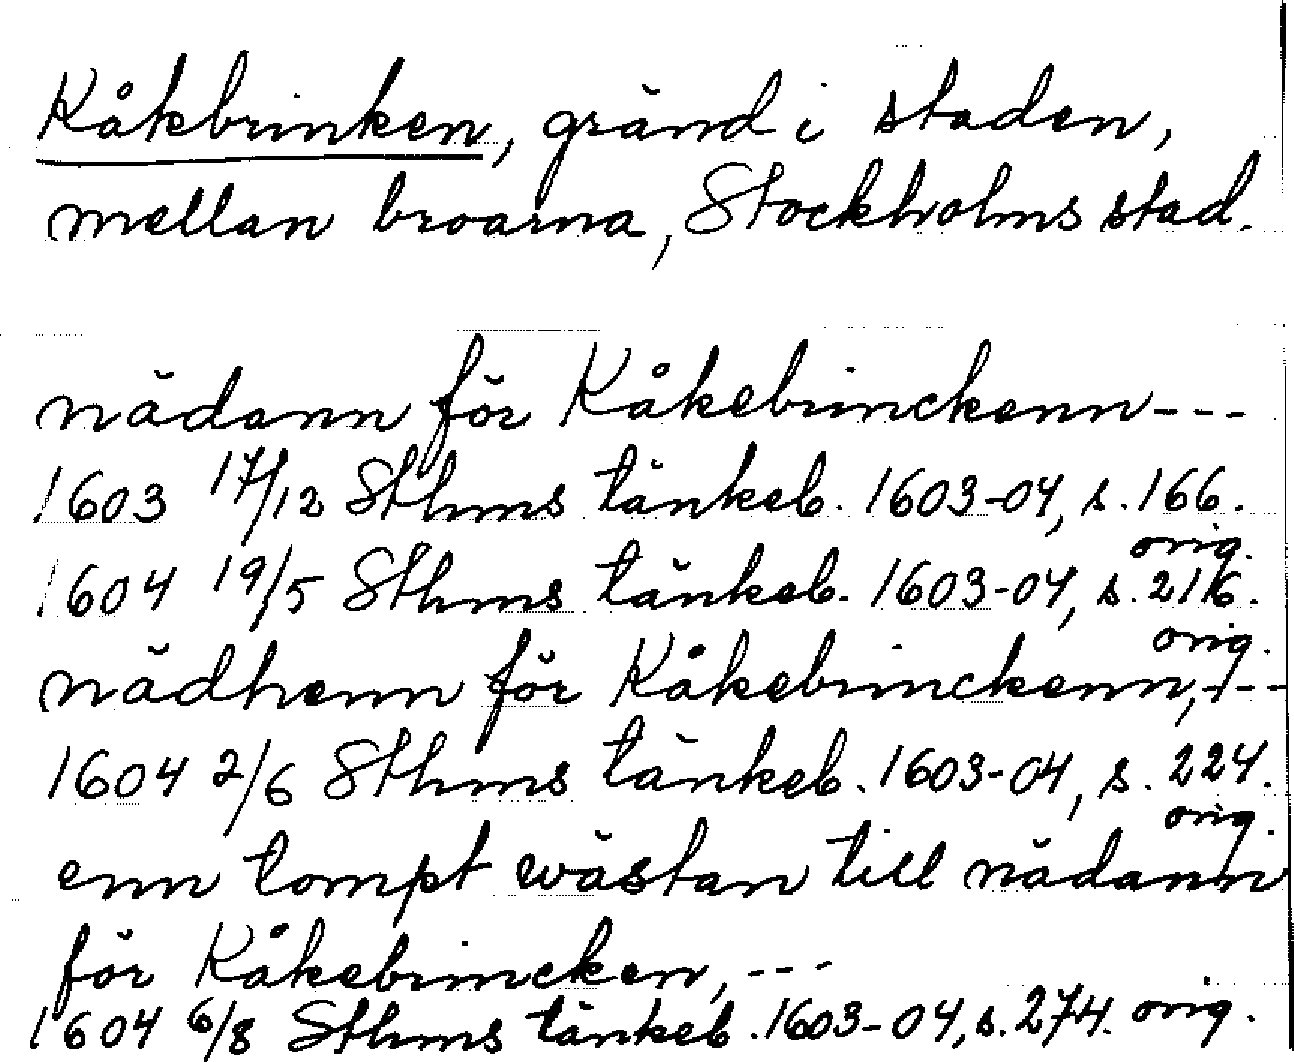 Kåkbrinken, gränd i staden,
mellan broarna, Stockholms stad.
nädann för Kåkebrinckenn---
1603 17/12 Sthms tänkeb. 1603-04, s. 166.
orig.
1604 19/5 Sthms tänkeb. 1603-04, s. 216.
orig.
nädhenn för Kåkebrinckenn,---
1604 2/6 Sthms tänkeb. 1603-04, s. 224.
orig.
enn tompt wästan till nädann
för Kåkebrincken,---
1604 6/8 Sthms tänkeb. 1603-04, s. 274. orig.